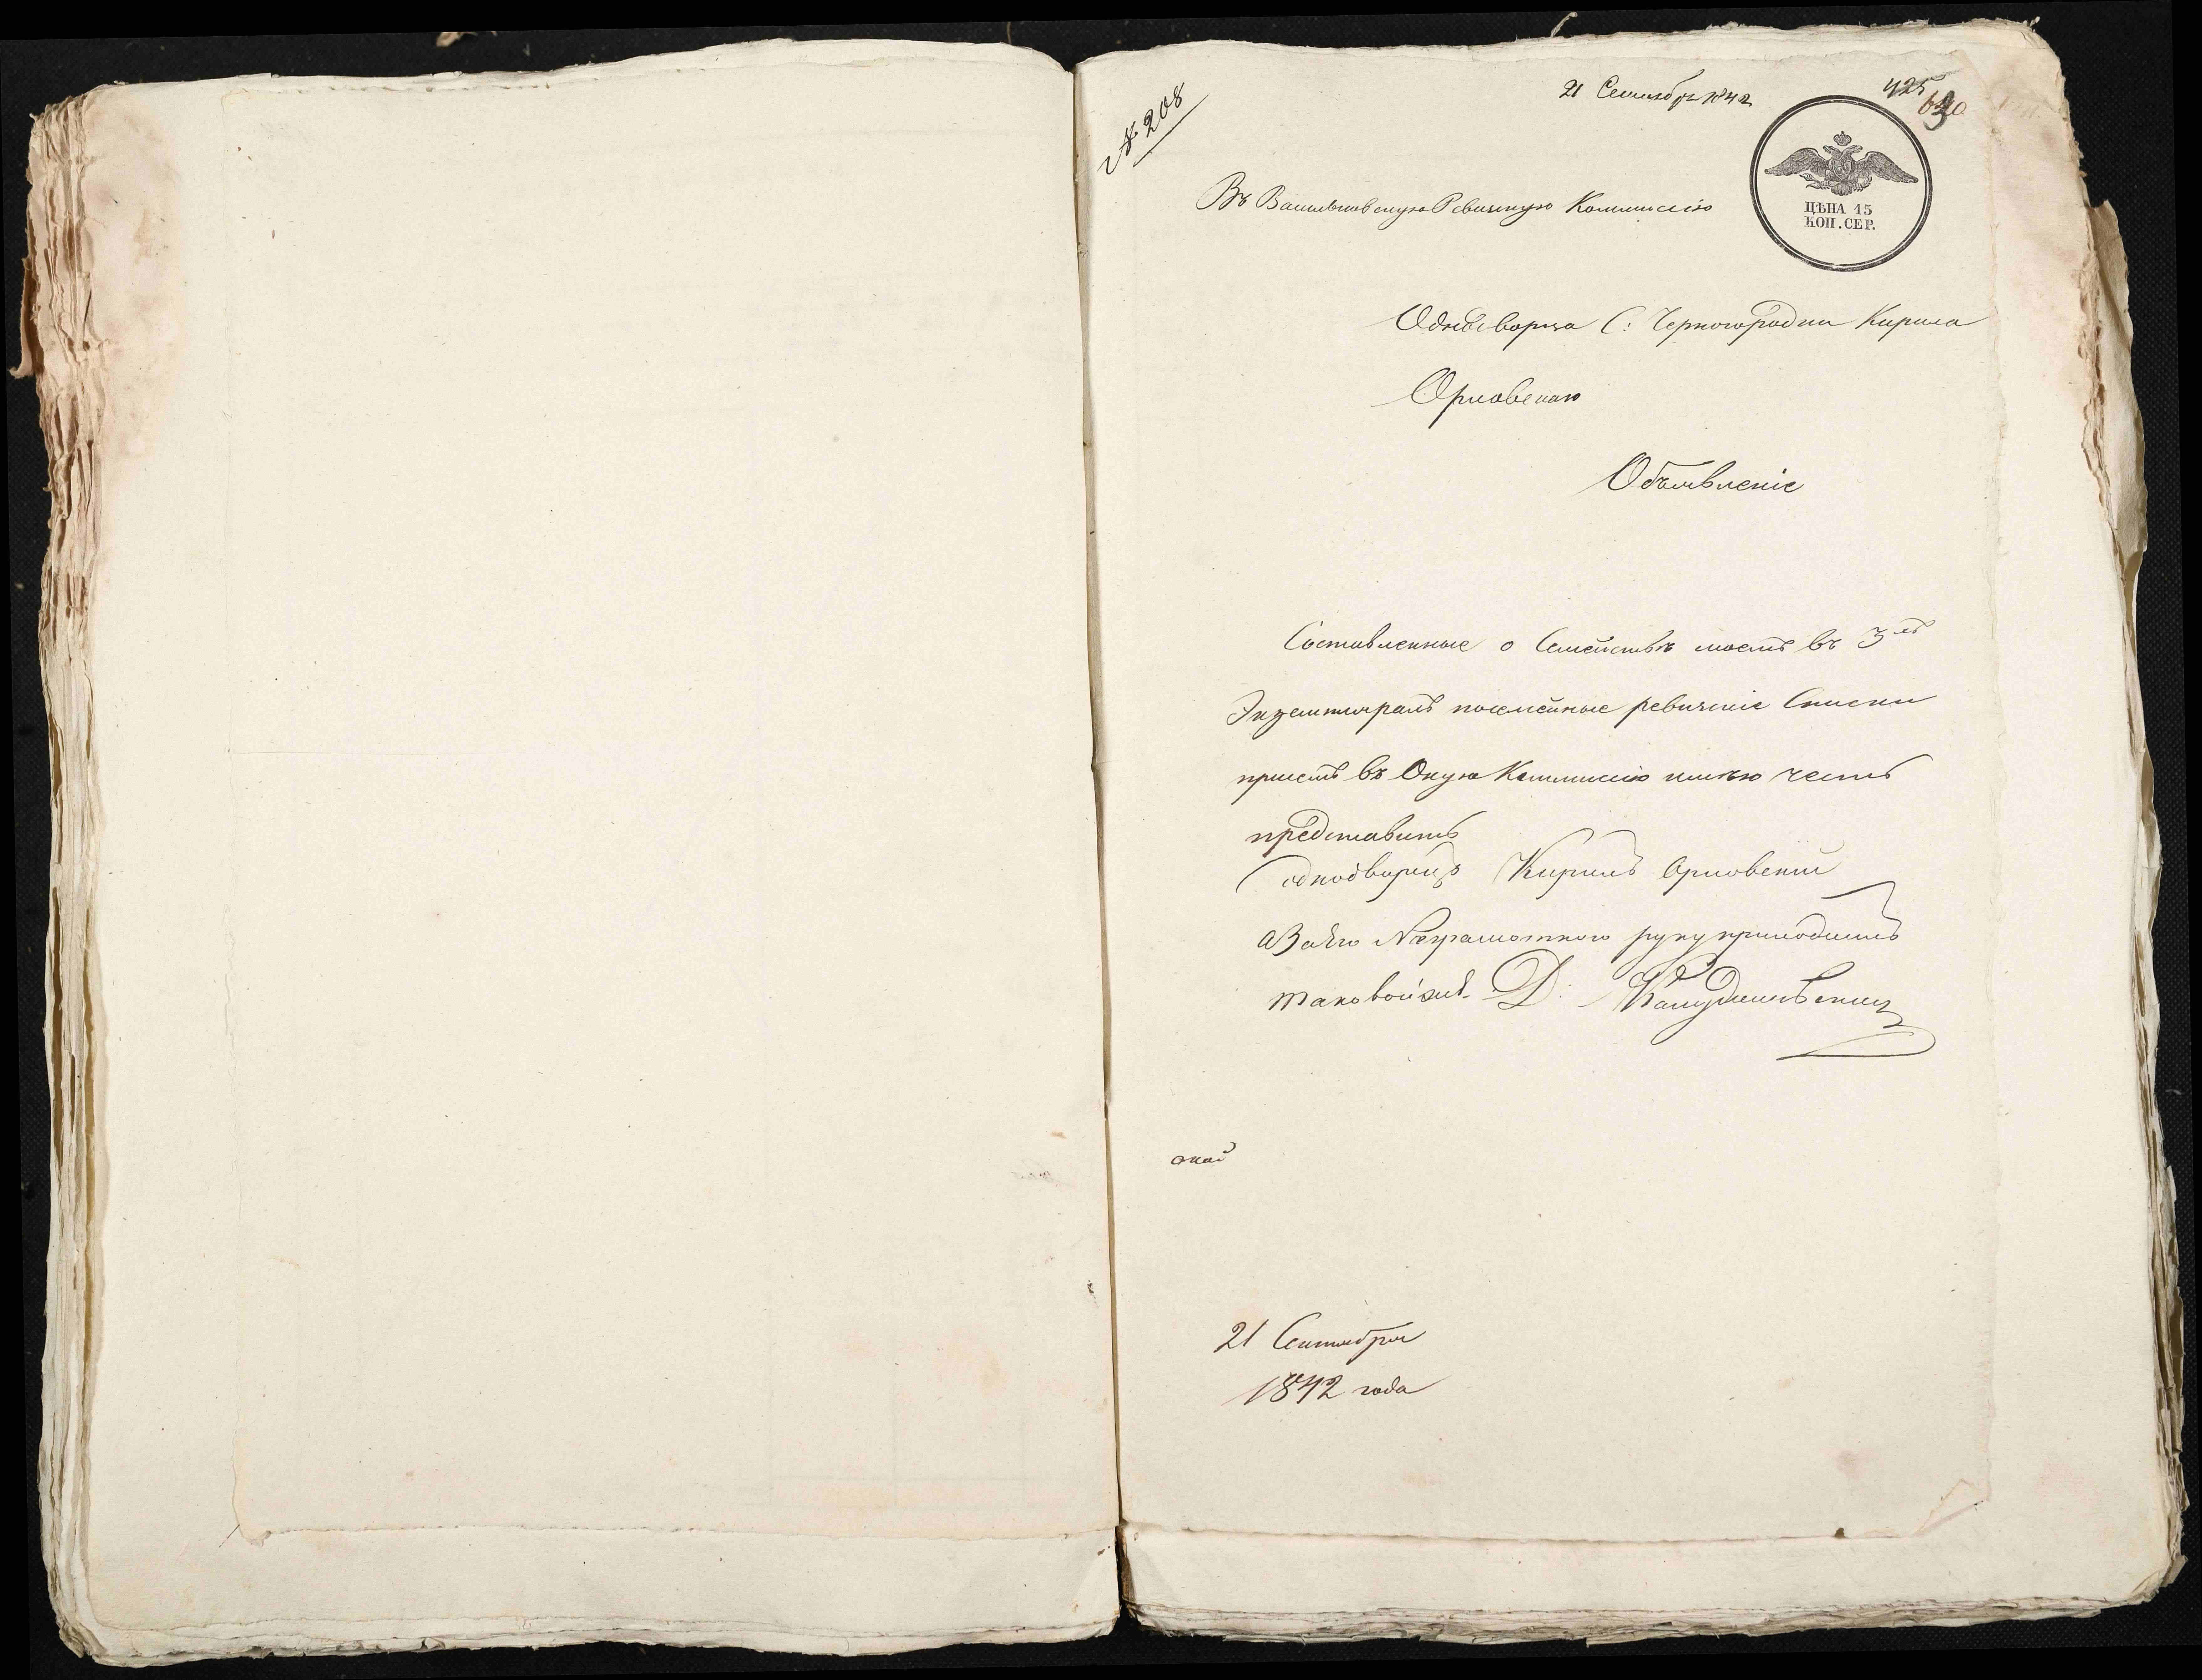 № 208
21 Сентября 1842
425
Въ Васильковскую Ревизскую Коммисію
ЦѢНА 15
КОП. СЕР.
Однодворца С: Черногородки Кирила
Орловскаго
Объявленіе
Составленные о Семействѣ моемъ въ 3хъ
Экземплярахъ посемейные ревизскіе Списки
при семъ въ Оную Коммисію имѣю честь
представить
однодворецъ Кирилъ Орловскій
а За его Неграмотного руку приложилъ
таковой же Д:
21 Сентября
1842 года